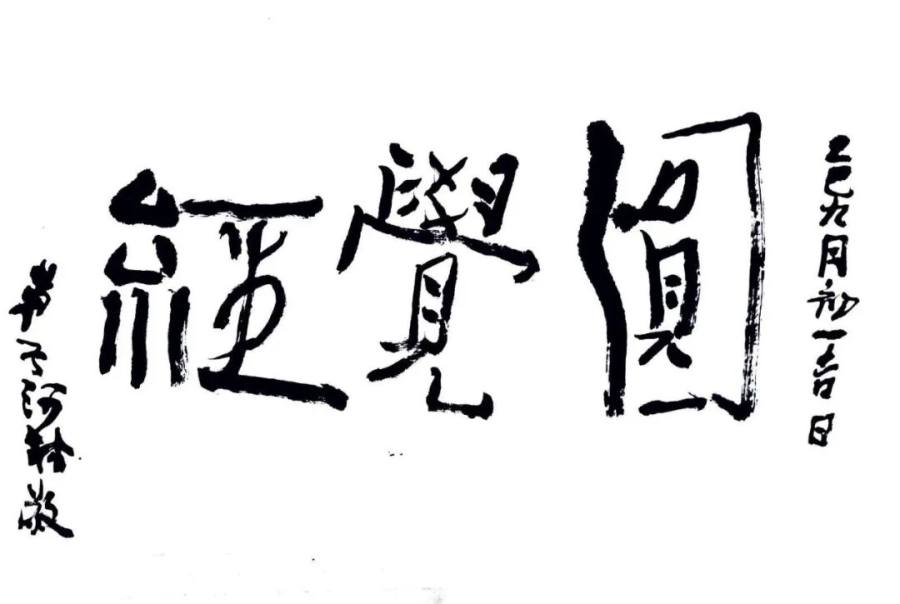 乙巳九月初一吉日
圓覺經
弟子阿敬